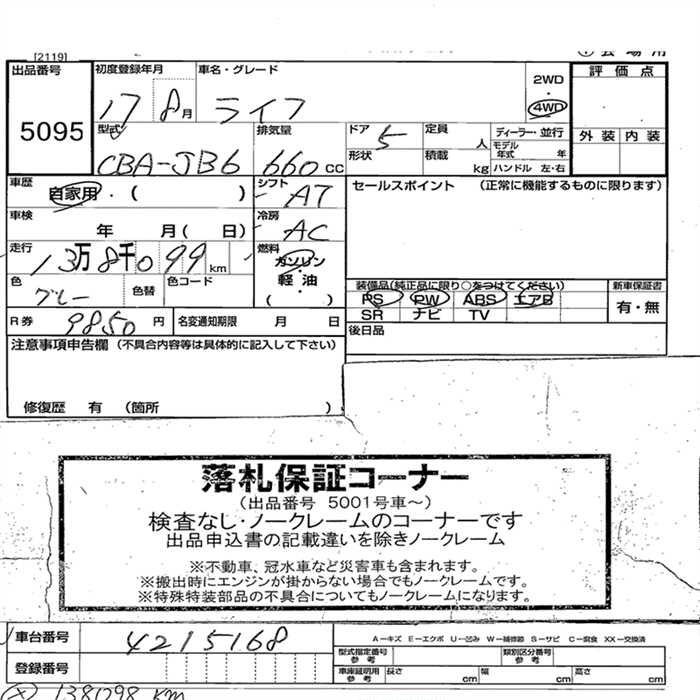 [2119]
出品番号 初度登録年月 車名・グレード 評価点
2WD
5095 17 8月 ライフ 4WD
型式 排気量 ドア 5 定員 人 ディーラー・並行 外装 内装
CBA-JB6 660cc 形状 積載 kg モデル年式 年
ハンドル 左・右
車歴 自家用・( ) シフト AT セールスポイント (正常に機能するものに限ります)
車検 年 月( 日) 冷房 AC
走行 13万8千099km 燃料 ガソリン・軽油・( )
色 グレー 色替 色コード 装備品(純正品に限り○をつけてください) 新車保証書
PS PW ABS エアB 有・無
R券 9850円 名変通知期限 月 日 SR ナビ TV
注意事項申告欄 (不具合内容等は具体的に記入して下さい) 後日品
修復歴 有 (箇所 )
落札保証コーナー
(出品番号 5001号車~)
検査なし・ノークレームのコーナーです
出品申込書の記載違いを除きノークレーム
※不動車、冠水車など災害車も含まれます。
※搬出時にエンジンが掛からない場合でもノークレームです。
※特殊特装部品の不具合についてもノークレームになります。
車台番号 4215168 A-キズ E-エクボ U-凹み W-補修跡 S-サビ C-腐食 XX-交換済
型式指定番号 参考 類別区分番号 参考
登録番号 車庫証明用 参考 長さ cm 幅 cm 高さ cm
138098 km